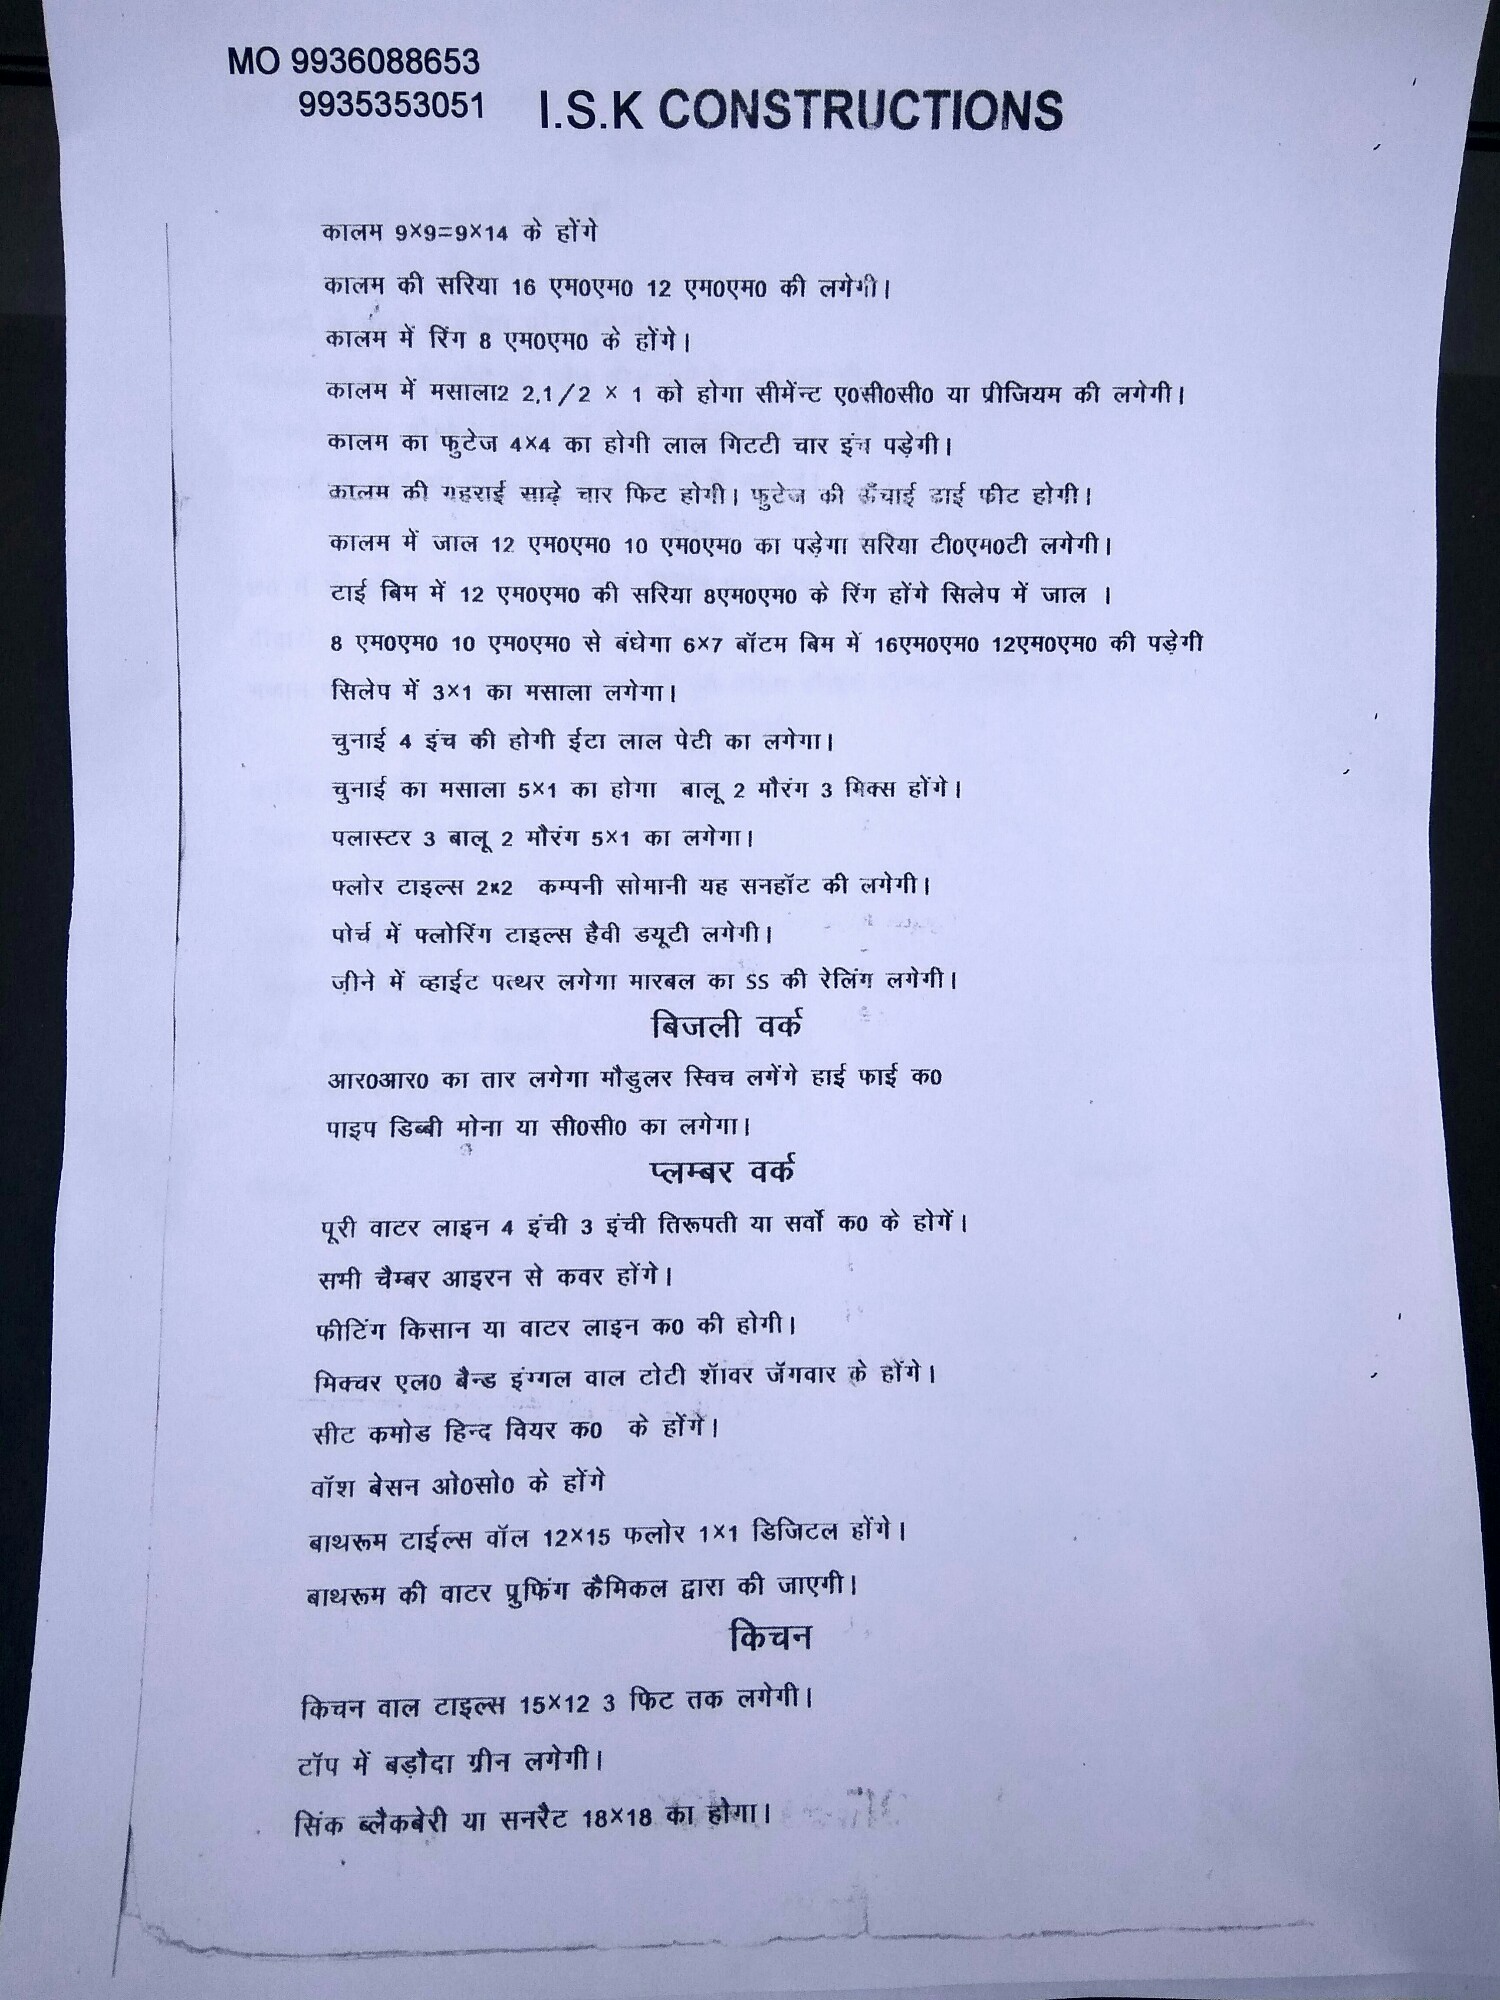 MO 9936088653
9935353051
I.S.K CONSTRUCTIONS
कालम 9×9=9×14 के होंगे
कालम की सरिया 16 एम0एम0 12 एम0एम0 की लगेगी।
कालम में रिंग 8 एम0एम0 के होंगे।
कालम में मसाला2 2,1/2 × 1 को होगा सीमेंन्ट ए0सी0सी0 या प्रीजियम की लगेगी।
कालम का फुटेज 4×4 का होगी लाल गिटटी चार इंच पड़ेगी।
कालम की गहराई साढ़े चार फिट होगी। फुटेज की ऊँचाई ढाई फीट होगी।
कालम में जाल 12 एम0एम0 10 एम0एम0 का पड़ेगा सरिया टी0एम0टी लगेगी।
टाई बिम में 12 एम0एम0 की सरिया 8एम0एम0 के रिंग होंगे सिलेप में जाल ।
8 एम0एम0 10 एम0एम0 से बंधेगा 6×7 बॉटम बिम में 16एम0एम0 12एम0एम0 की पड़ेगी
सिलेप में 3×1 का मसाला लगेगा।
चुनाई 4 इंच की होगी ईटा लाल पेटी का लगेगा।
चुनाई का मसाला 5×1 का होगा बालू 2 मौरंग 3 मिक्स होंगे।
पलास्टर 3 बालू 2 मौरंग 5×1 का लगेगा।
फ्लोर टाइल्स 2×2 कम्पनी सोमानी यह सनहॉट की लगेगी।
पोर्च में फ्लोरिंग टाइल्स हैवी डयूटी लगेगी।
ज़ीने में व्हाईट पत्थर लगेगा मारबल का SS की रेलिंग लगेगी।
बिजली वर्क
आर0आर0 का तार लगेगा मौडुलर स्विच लगेंगे हाई फाई क0
पाइप डिब्बी मोना या सी0सी0 का लगेगा।
प्लम्बर वर्क
पूरी वाटर लाइन 4 इंची 3 इंची तिरूपती या सर्वो क0 के होगें।
सभी चैम्बर आइरन से कवर होंगे।
फीटिंग किसान या वाटर लाइन क0 की होगी।
मिक्चर एल0 बैन्ड इंग्गल वाल टोटी शॅावर जॅगवार के होंगे।
सीट कमोड हिन्द वियर क0 के होंगे।
वॉश बेसन ओ0सो0 के होंगे
बाथरूम टाईल्स वॉल 12×15 फलोर 1×1 डिजिटल होंगे।
बाथरूम की वाटर प्रुफिंग कैमिकल द्वारा की जाएगी।
किचन
किचन वाल टाइल्स 15×12 3 फिट तक लगेगी।
टॉप में बड़ौदा ग्रीन लगेगी।
सिंक ब्लैकबेरी या सनरैट 18×18 का होगा।